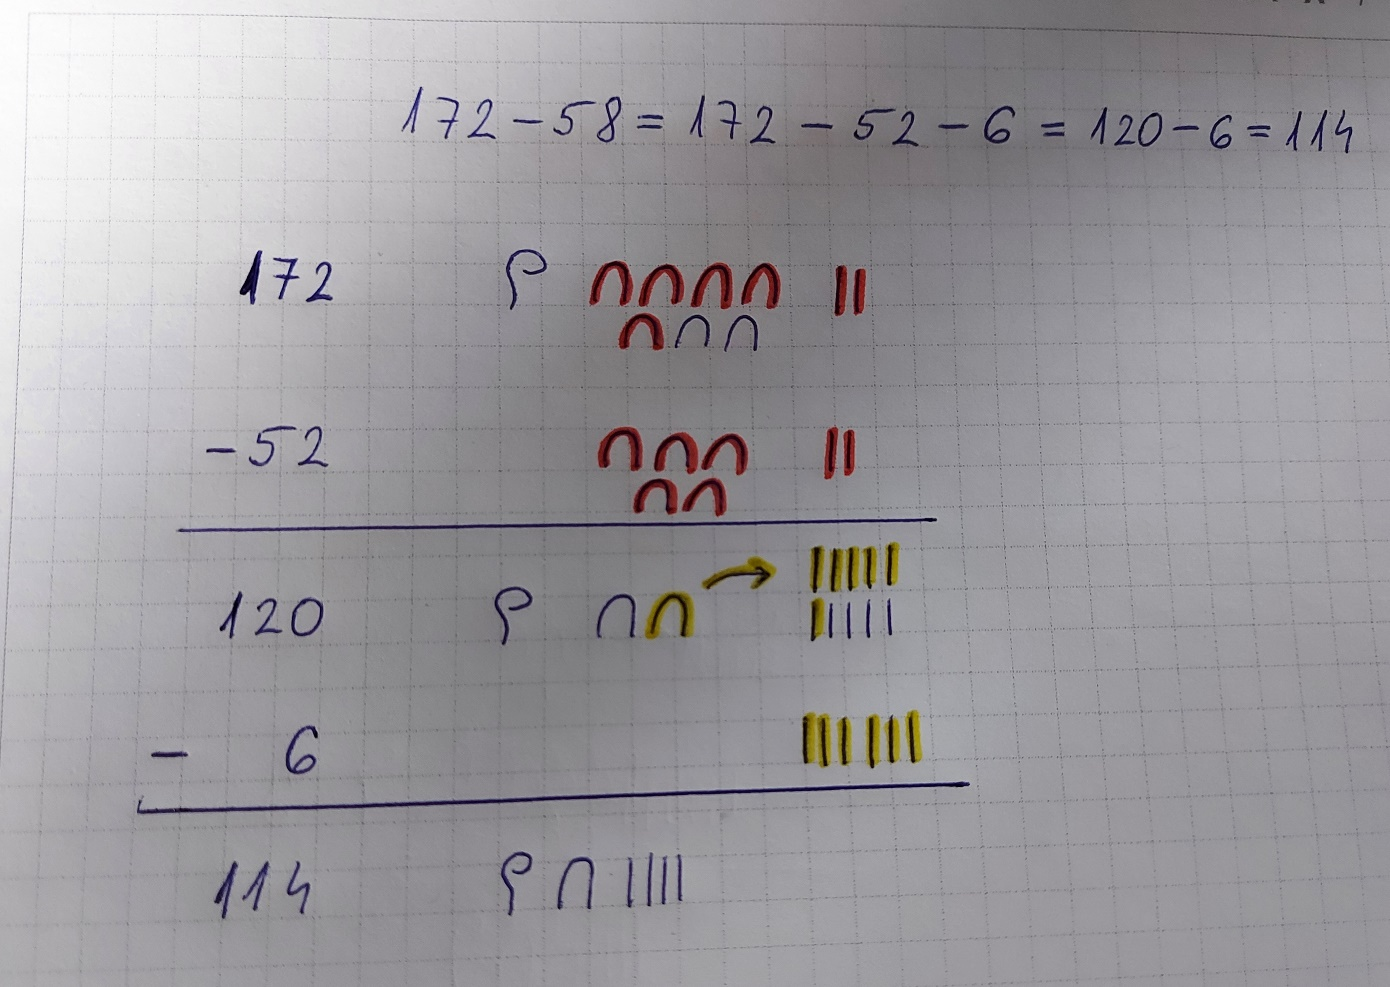 172 - 58 = 172 - 52 - 6 = 120 - 6 = 114
172 𓍢 ∩∩∩∩ ||
∩∩∩
-52 ∩∩∩ ||
∩∩
120 𓍢 ∩∩ → |||||
|||||
- 6 ||||||
114 𓍢 ∩ ||||